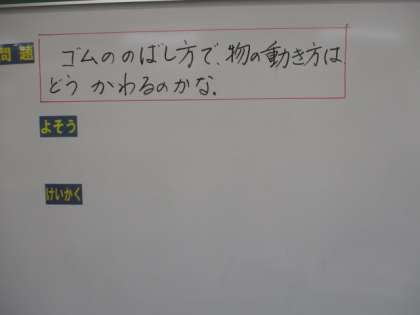 問題
ゴムののばし方で、物の動き方は
どうかわるのかな。
よそう
けいかく